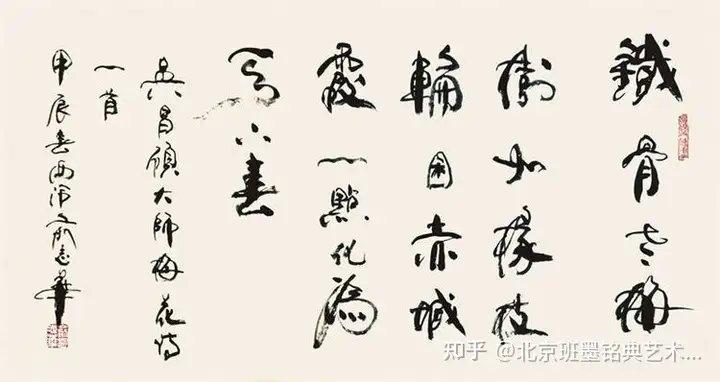 鐵骨老梅
樹如椽枝
輪囷赤城
霞一點化為
天下春
吳昌碩大師梅花詩
一首
甲辰春西泠俞建華
知乎 @北京班墨铭典艺术...